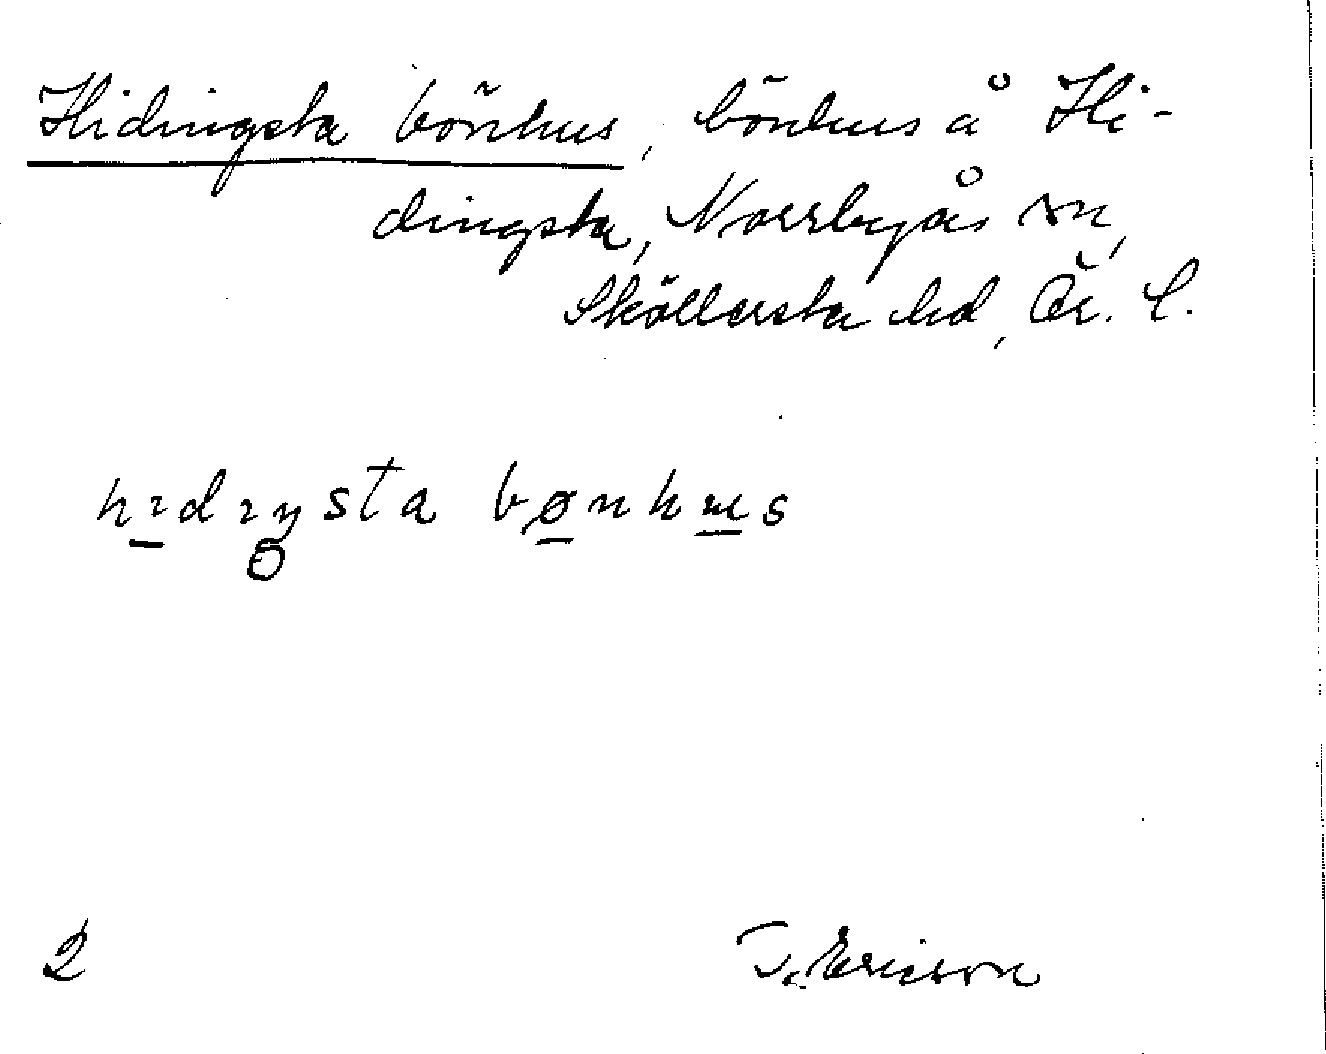 Hidingsta bönhus, bönhus å Hi-
dingsta, Norrbyås sn,
Sköllersta hd, Ör. l.
hıdıŋsta bønhus
2
T. Ericson